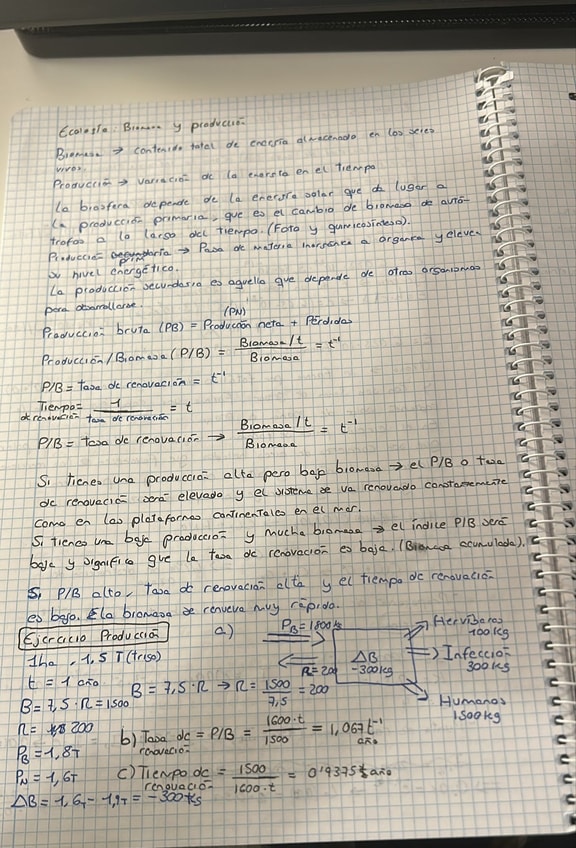 Ecología: Biomasa y producción
Biomasa → contenido total de energía almacenado en los seres
vivos.
Producción → variación de la energía en el tiempo
La biosfera depende de la energía solar que da lugar a
la producción primaria, que es el cambio de biomasa de autó-
trofos a lo largo del tiempo. (Foto y quimiosíntesis).
Producción prim → Pasa de materia inorgánica a organica y eleven
su nivel energético.
La producción secundaria es aquella que depende de otros organismos
para desarrollarse.
(PN)
Producción bruta (PB) = Producción neta + Pérdidas
Producción/Biomasa (P/B) = Biomasa/t / Biomasa = t⁻¹
P/B = tasa de renovación = t⁻¹
Tiempo de renovación = 1 / tasa de renovación = t
P/B = tasa de renovación → Biomasa/t / Biomasa = t⁻¹
Si tienes una producción alta pero baja biomasa → el P/B o tasa
de renovación será elevado y el sistema se va renovando constantemente
como en las plataformas continentales en el mar.
Si tienes una baja producción y mucha biomasa → el índice P/B será
bajo y significa que la tasa de renovación es baja. (Biomasa acumulada).
Si P/B alto, tasa de renovación alta y el tiempo de renovación
es bajo. La biomasa se renueva muy rápido.
Ejercicio Producción
a) PB = 1800 kg
R = 200
ΔB
-300kg
Hervíboros
100 kg
Infección
300 kg
Humanos
1500 kg
1ha, 1,5 T (trigo)
t = 1 año
B = 7,5 · R = 1500
B = 7,5 · R → R = 1500 / 7,5 = 200
R = 200
PB = 1,8T
PN = 1,6T
ΔB = 1,6T - 1,9T = -300 kg
b) Tasa de renovación = P/B = 1600·t / 1500 = 1,067 t⁻¹ año
c) Tiempo de renovación = 1500 / 1600·t = 0'9375 año